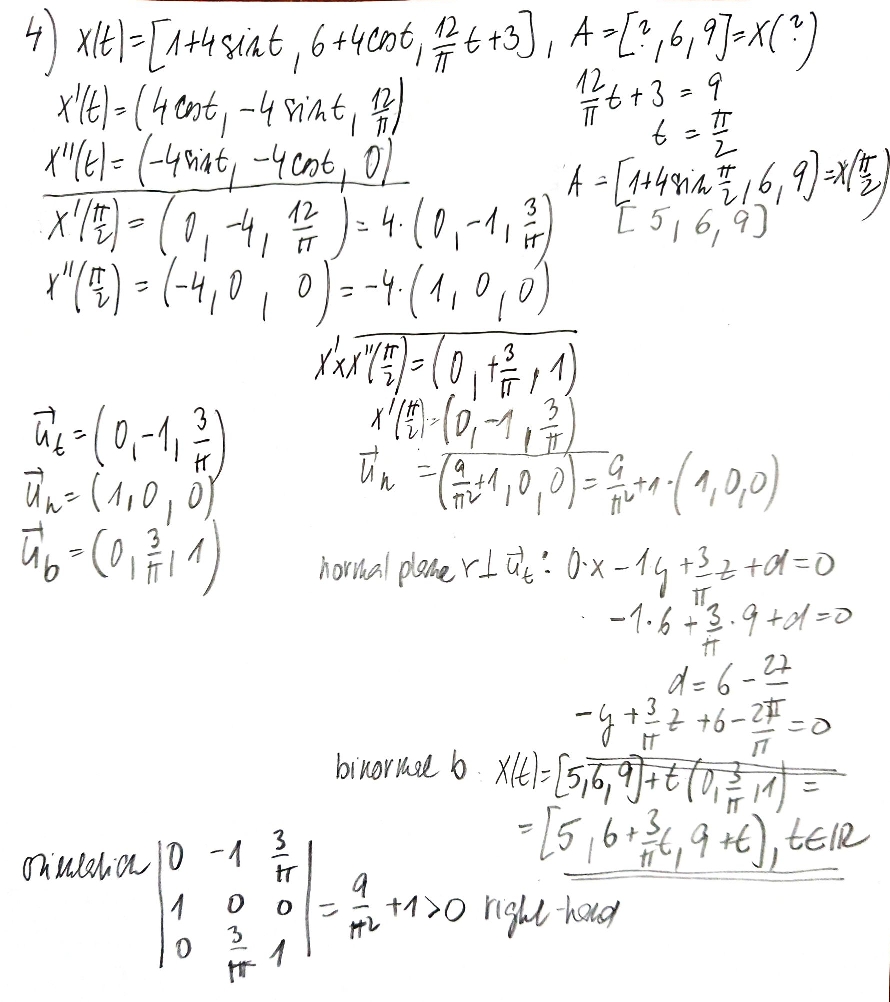 4) X(t)=[1+4sint, 6+4cost, 12/π t+3], A=[?,6,9]=X(?)
X'(t)=(4cost, -4sint, 12/π)
12/π t+3 = 9
X''(t)=(-4sint, -4cost, 0)
t = π/2
A=[1+4sin π/2, 6, 9]=X(π/2)
X'(π/2)=(0, -4, 12/π)=4·(0, -1, 3/π)
[5, 6, 9]
X''(π/2)=(-4, 0, 0)=-4·(1, 0, 0)
X'×X''(π/2)=(0, +3/π, 1)
X'(π/2)=(0, -1, 3/π)
u⃗t=(0, -1, 3/π)
u⃗n =(9/π²+1, 0, 0)=9/π²+1·(1, 0, 0)
u⃗n=(1, 0, 0)
u⃗b=(0, 3/π, 1)
normal plane r⊥u⃗t: 0·x-1y+3/π z+d=0
-1·6+3/π·9+d=0
d=6-27/π
-y+3/π z+6-27/π=0
binormal b X(t)=[5,6,9]+t(0,3/π,1)=
=[5, 6+3/π t, 9+t], t∈ℝ
orientation |0 -1 3/π|
|1 0 0| = 9/π²+1>0 right-hand
|0 3/π 1|